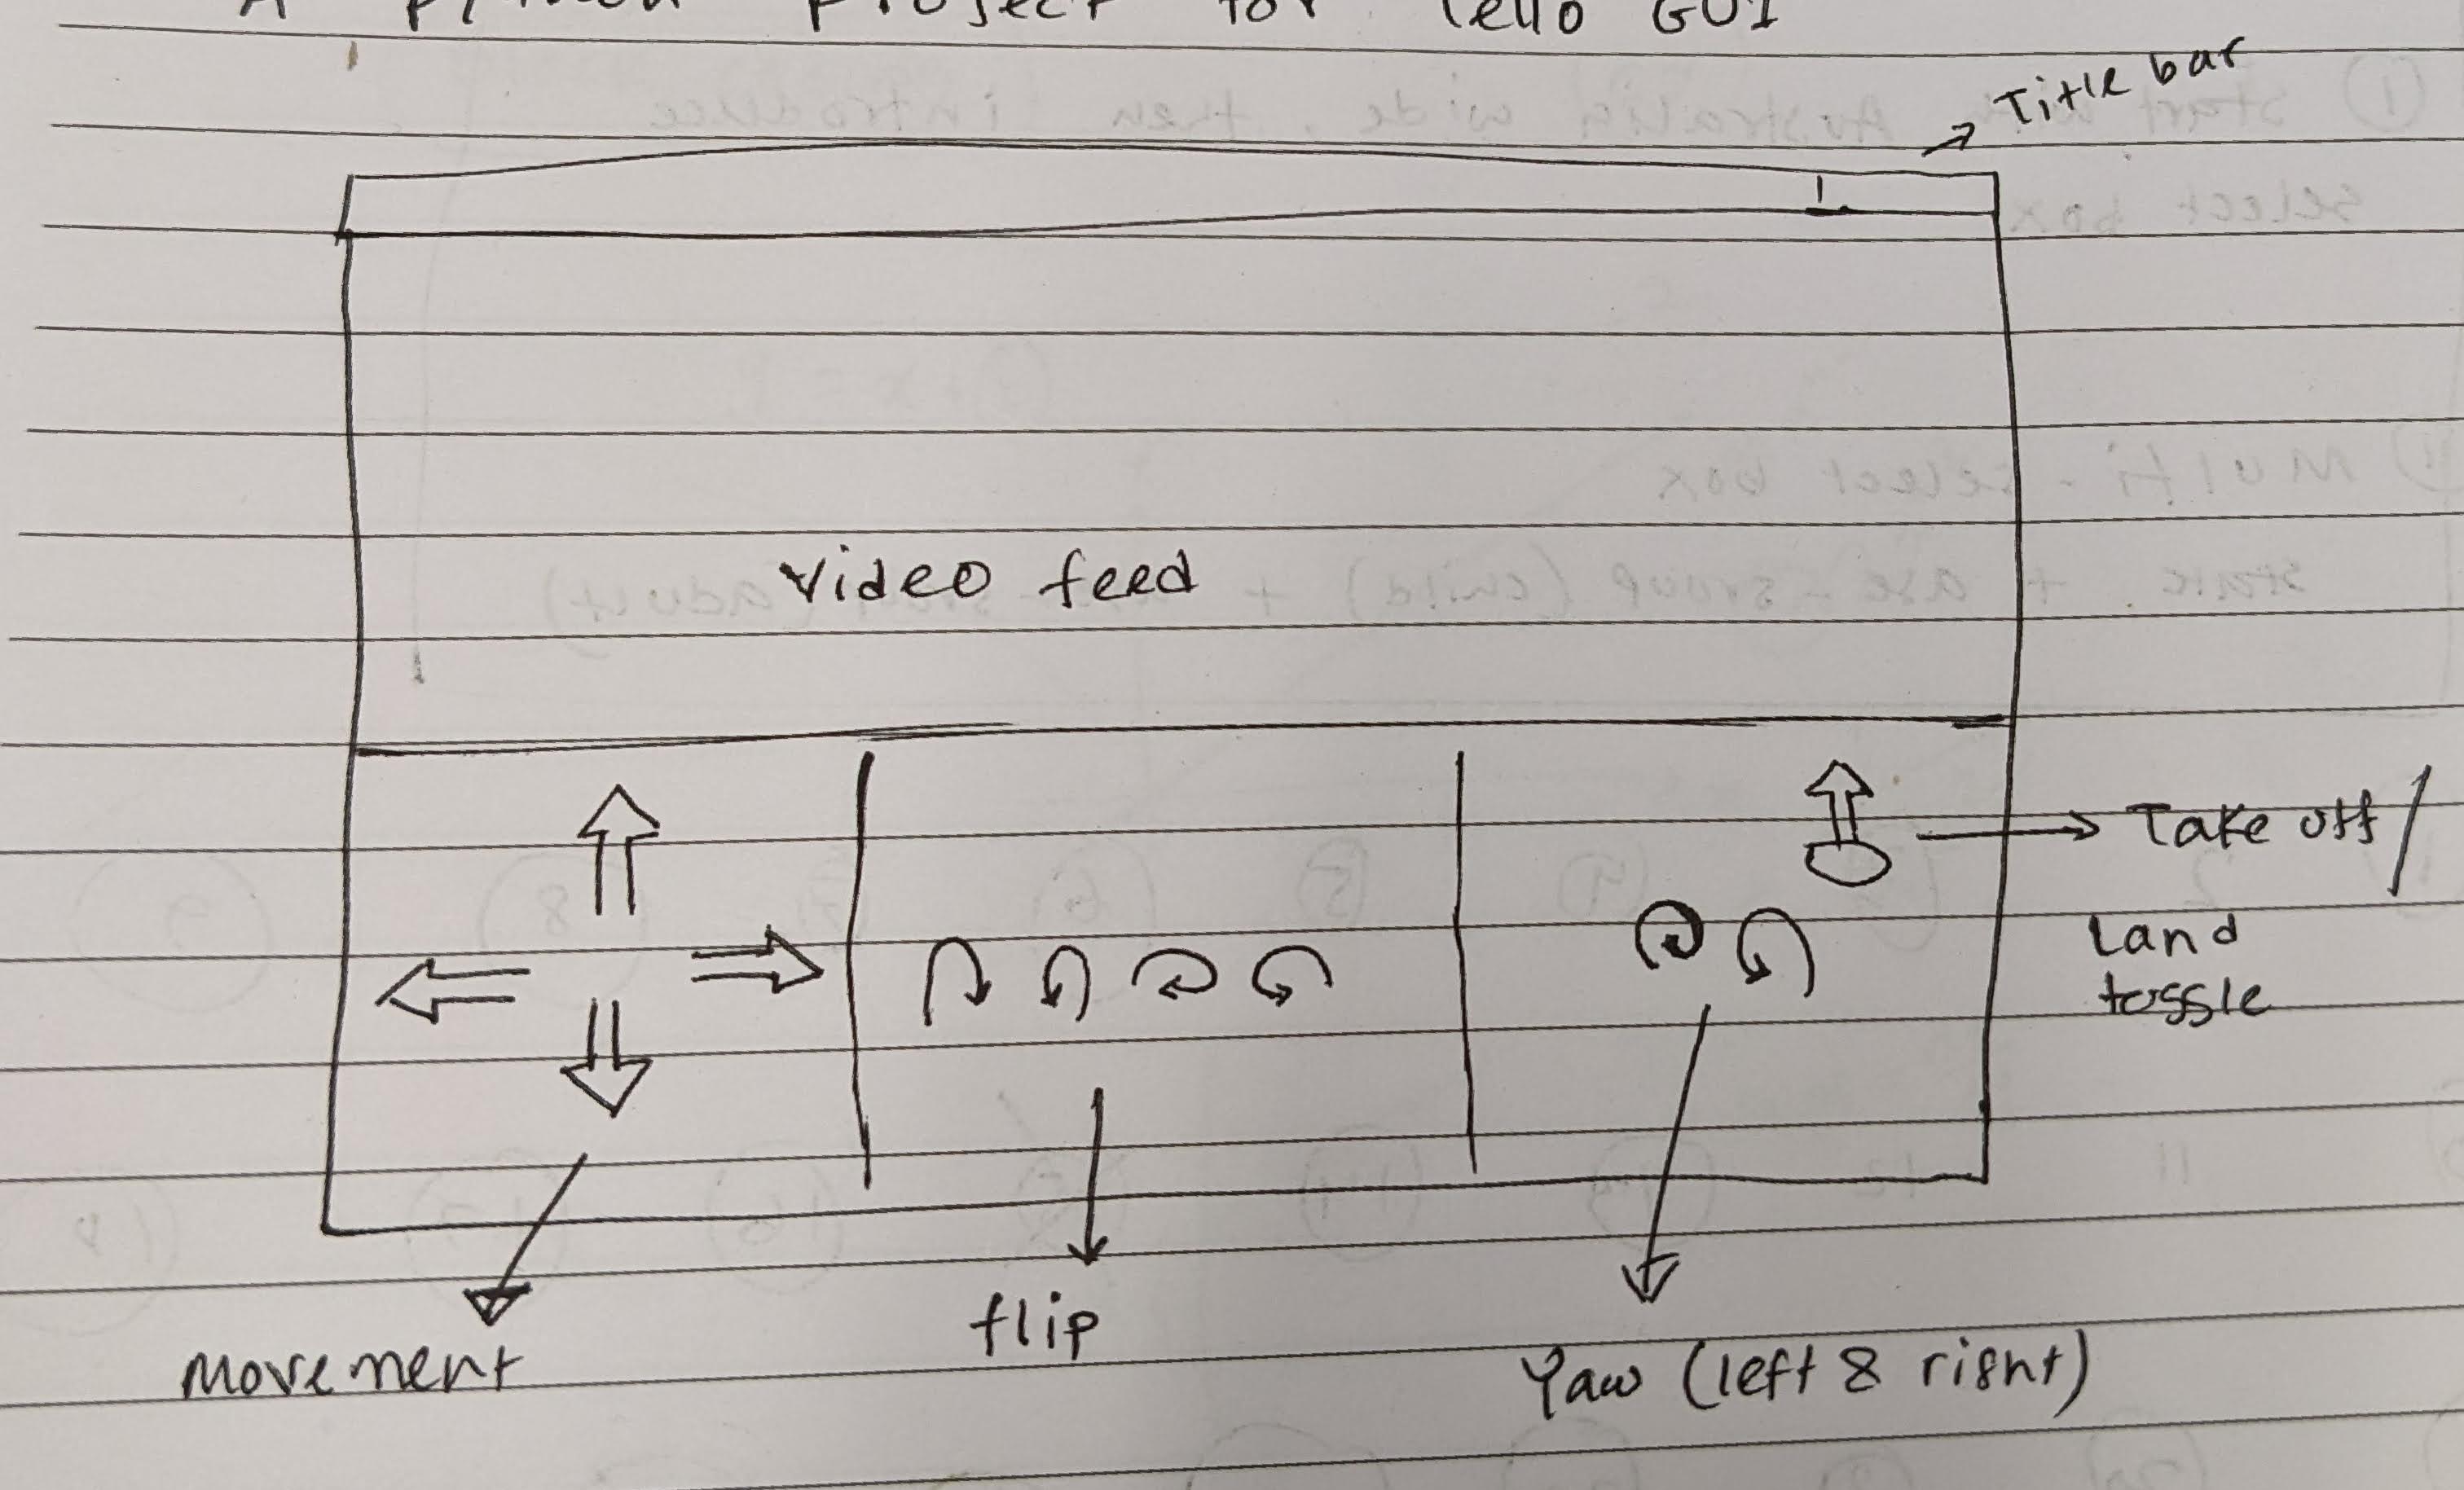 A Python Project for Tello GUI
Title bar
Video feed
Take off /
Land
toggle
Movement
flip
Yaw (left & right)